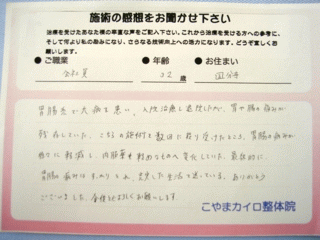 施術の感想をお聞かせ下さい
治療を受けたあなた様の率直な声をご記入下さい。これから治療を受ける方への参考に、
そして何より私の励みになり、さらなる技術向上への努力になります。どうぞ宜しくお
願いします。
● ご職業 ● 年齢 ● お住まい
会社員 32 歳 国分寺
胃腸炎が 悪い、入院治療し退院したが、胃や腸の痛みが
残存していた。こちらの施術を数回に渡り受けたところ、胃腸の痛みが
軽減し、内服薬も軽めなものへ変化していた。最終的に、
胃腸の痛みは とれ、安定した生活を送っている。ありがとう
ございました。今後ともよろしくお願いします。
こやまカイロ整体院